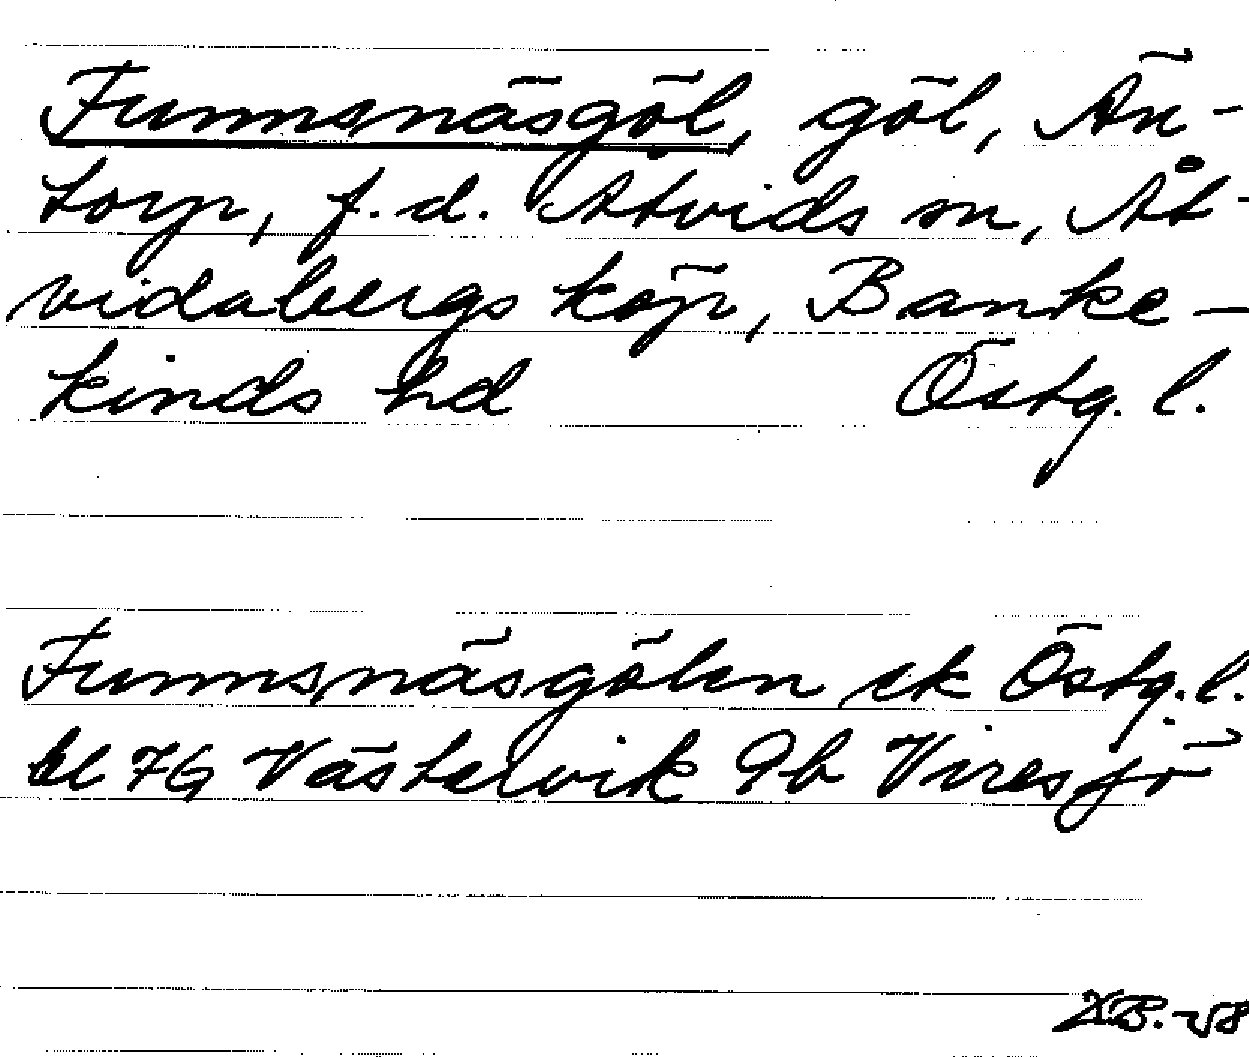 Funnsnäsgöl, göl, Än-
torp, f.d. Åtvids sn, Åt-
vidabergs köp, Banke-
kinds hd Östg. l.
Funnsnäsgölen ek Östg. l.
bl 7G Västervik 9b Viresjö